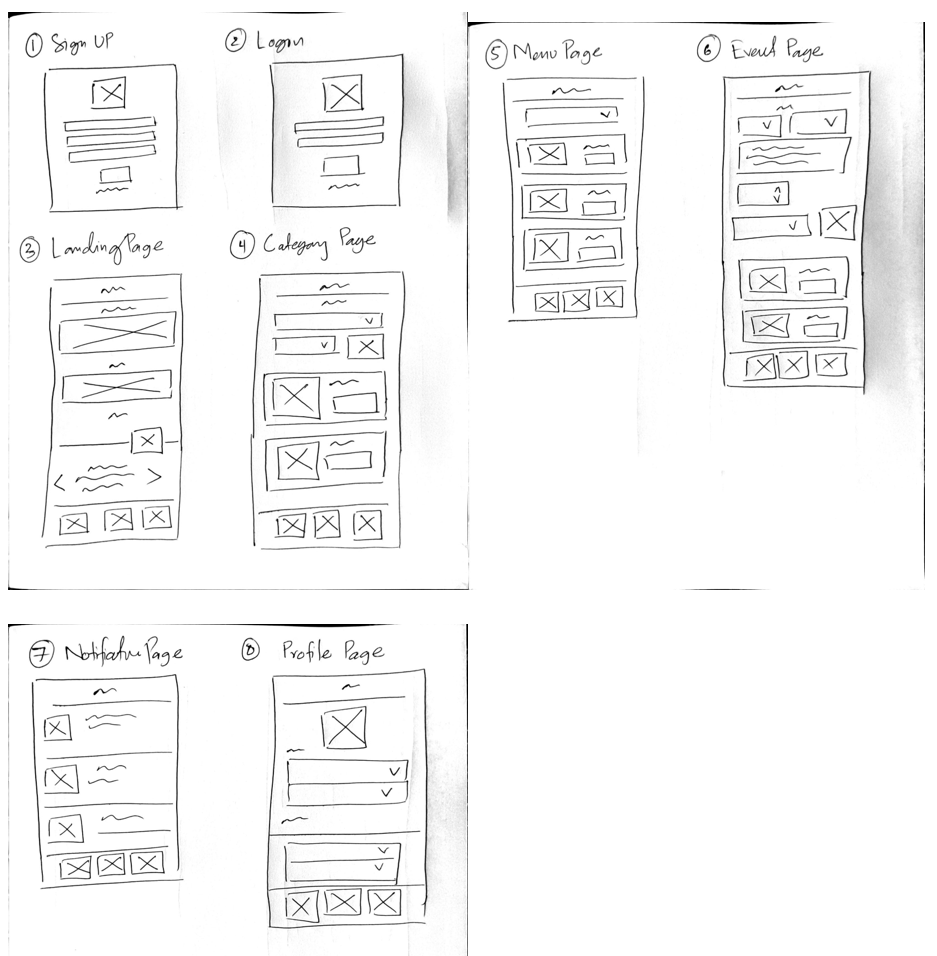 ① Sign UP
② Logon
③ Landing Page
④ Category Page
⑤ Menu Page
⑥ Event Page
⑦ Notifiature Page
⑧ Profile Page